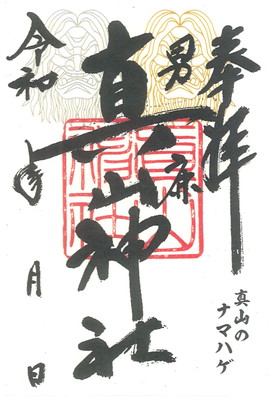 奉拝
男鹿
真山神社
令和 年 月 日
真山の
ナマハゲ